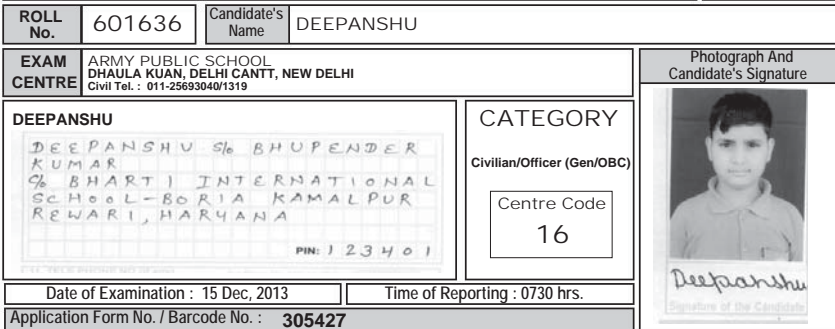 ROLL No. 601636 Candidate's Name DEEPANSHU
EXAM CENTRE
ARMY PUBLIC SCHOOL
DHAULA KUAN, DELHI CANTT, NEW DELHI
Civil Tel. : 011-25693040/1319
Photograph And
Candidate's Signature
DEEPANSHU
DEEPANSHU S/o BHUPENDER
KUMAR
C/o BHARTI INTERNATIONAL
SCHOOL-BORIA KAMALPUR
REWARI, HARYANA
PIN: 123401
CATEGORY
Civilian/Officer (Gen/OBC)
Centre Code
16
Deepanshu
Signature of the Candidate
Date of Examination : 15 Dec, 2013
Time of Reporting : 0730 hrs.
Application Form No. / Barcode No. : 305427